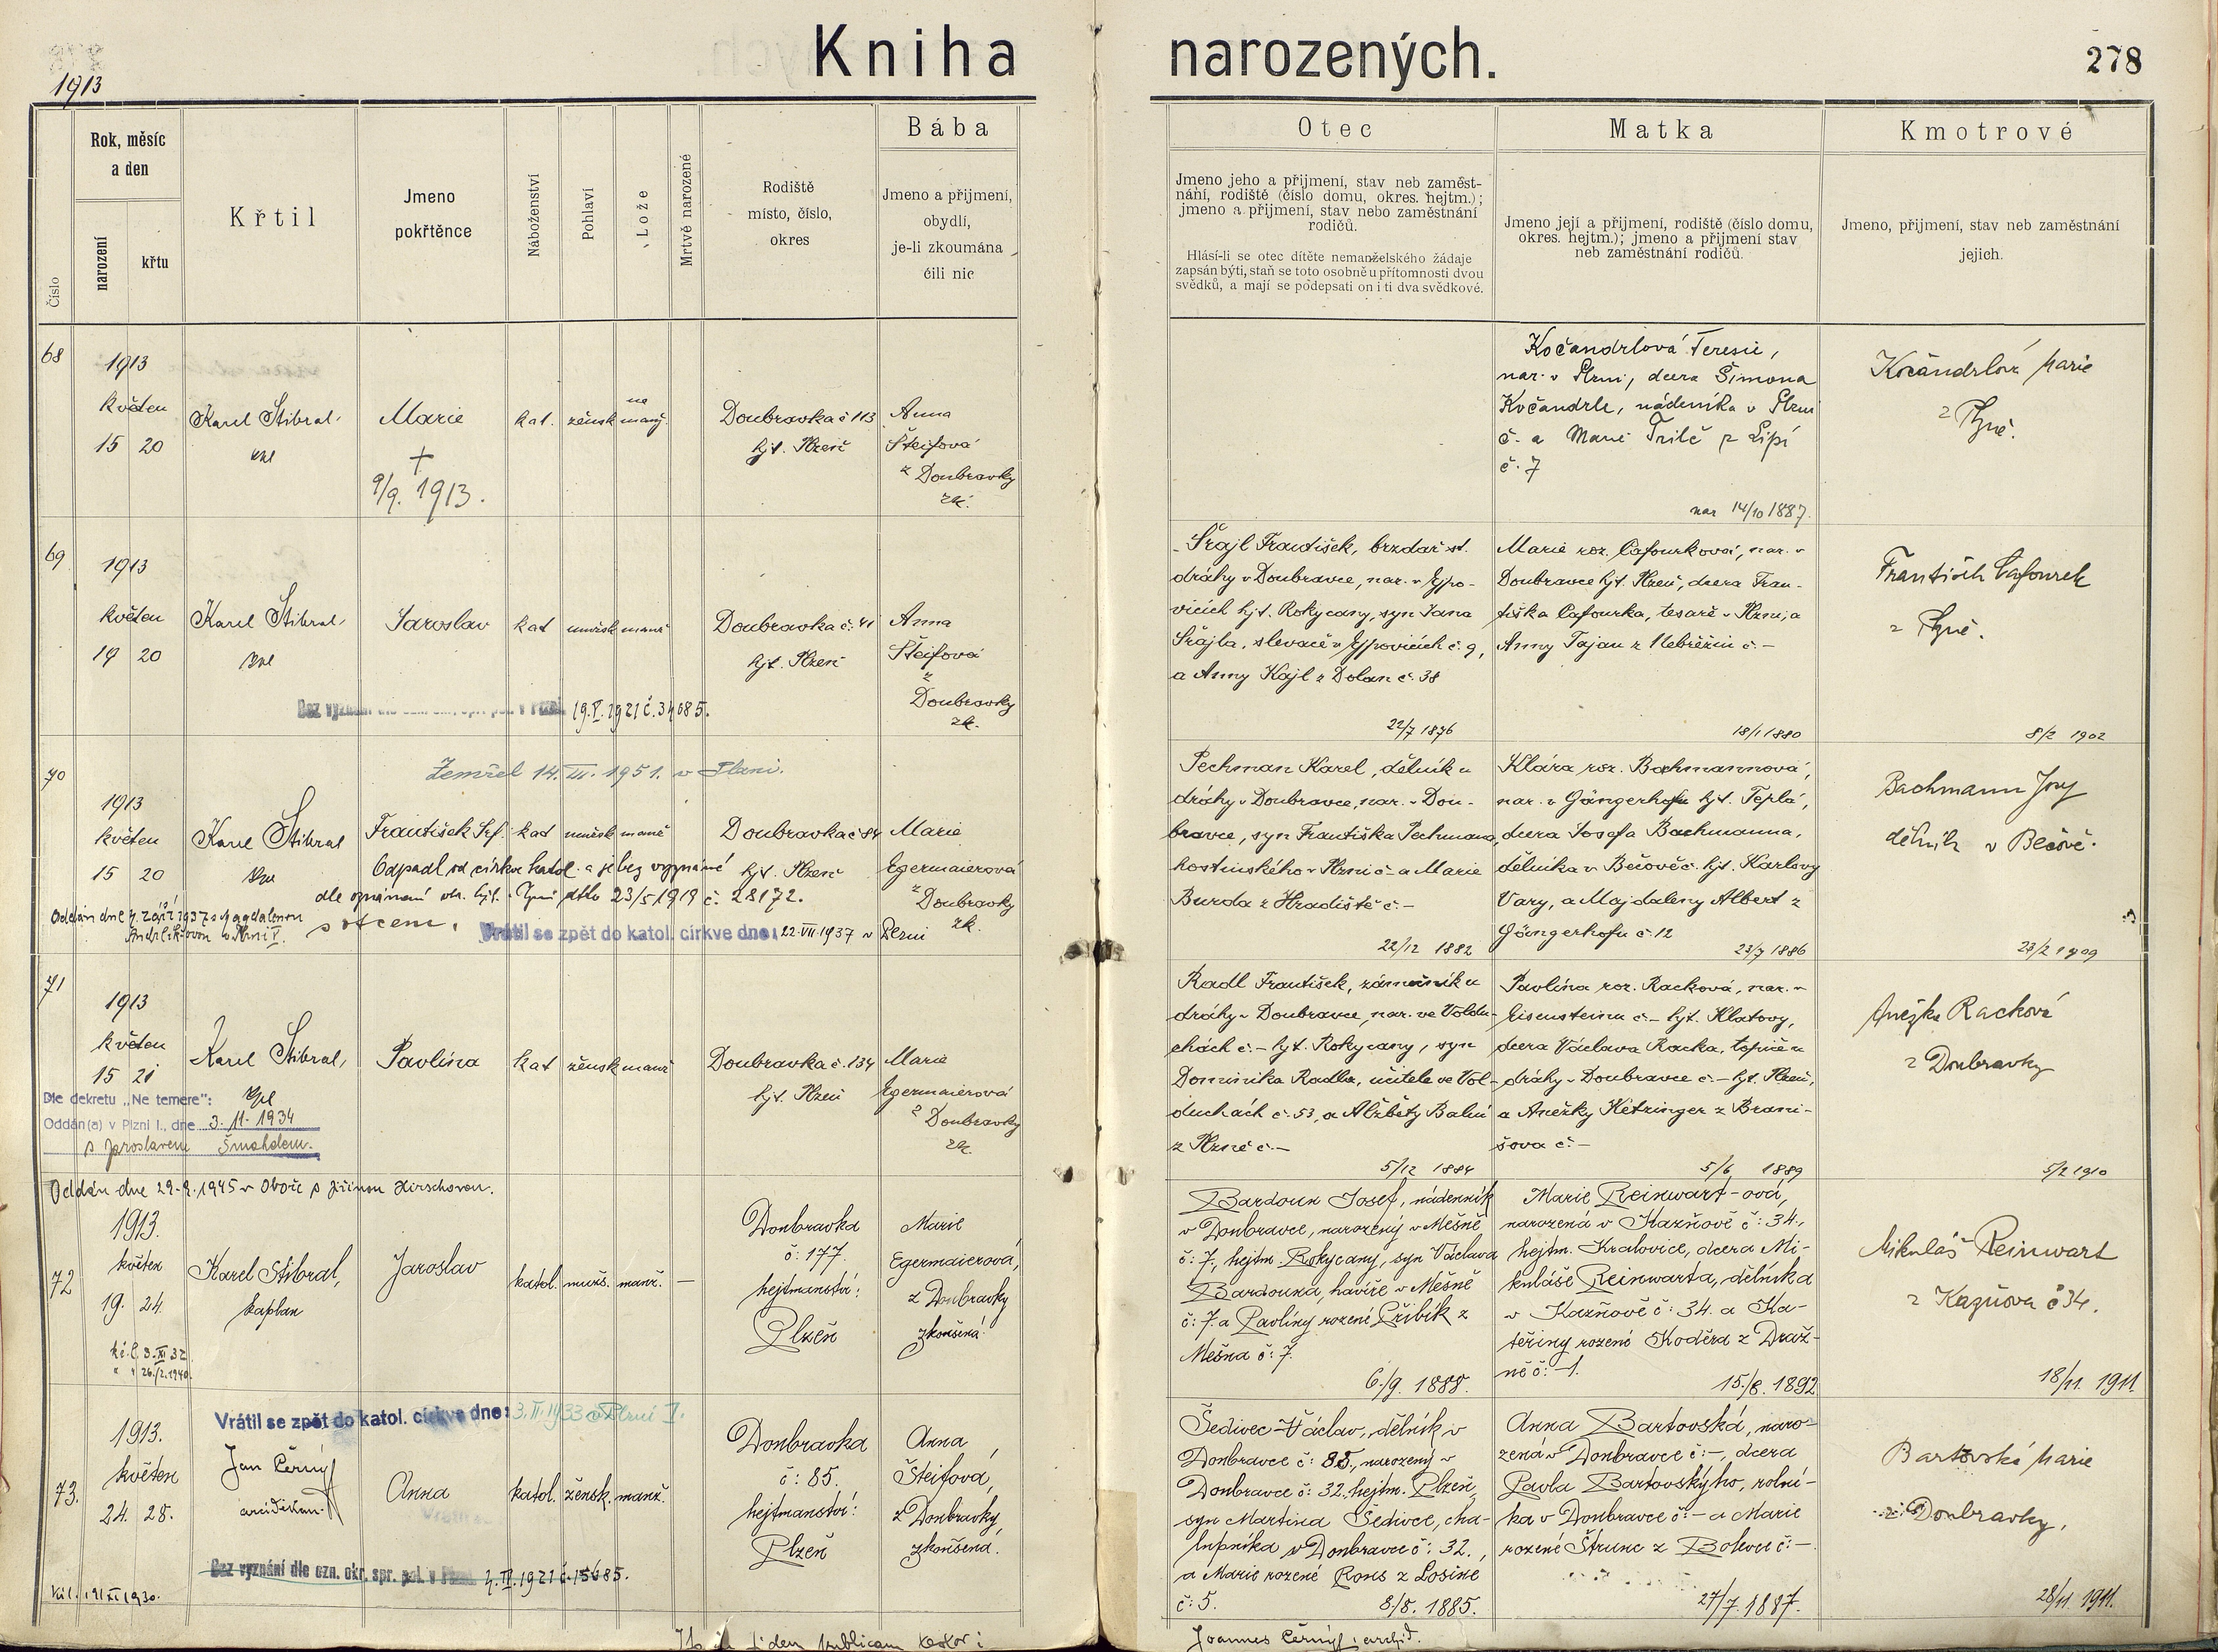 1913
Kniha narozených.
278
Číslo
Rok, měsíc
a den
narození
křtu
Křtil
Jmeno
pokřtěnce
Náboženství
Pohlaví
Lože
Mrtvě narozené
Rodiště
místo, číslo,
okres
Bába
Jmeno a přijmení,
obydlí,
je-li zkoumána
čili nic
Otec
Jmeno jeho a přijmení, stav neb zaměst-
nání, rodiště (číslo domu, okres. hejtm.);
jmeno a přijmení, stav nebo zaměstnání
rodičů.
Hlásí-li se otec dítěte nemanželského žádaje
zapsán býti, staň se toto osobně u přítomnosti dvou
svědků, a mají se podepsati on i ti dva svědkové.
Matka
Jmeno její a přijmení, rodiště (číslo domu,
okres. hejtm.); jmeno a přijmení stav
neb zaměstnání rodičů.
Kmotrové
Jmeno, přijmení, stav neb zaměstnání
jejich.
68
1913
květen
15 20
Karel Stibral,
kpl
Marie
+
9/9. 1913.
kat.
žensk
ne
manž.
Doubravka č 113
hjt. Plzeň
Anna
Šteifová
z Doubravky
zk.
Kočandrlová Terezie,
nar. v Plzni, dcera Šimona
Kočandrle, nádeníka v Plzni
č. a Marie Trilč z Lipí
č. 7
nar 14/10 1887.
Kočandrlová Marie
z Plzně.
69
1913
květen
19 20
Karel Stibral,
kpl
Jaroslav
kat
mužsk
manž
Doubravka č. 41
hjt. Plzeň
Anna
Šteifová
z
Doubravky
zk.
Bez vyznání dle ozn. okr. spr. pol. v Plzni 19.V.1921 č. 34685.
Šrajl František, brzdař st.
dráhy v Doubravce, nar. v Ejpo-
vicích hjt. Rokycany, syn Jana
Šrajla, slevače v Ejpovicích č. 9,
a Anny Kajl z Dolan č. 38
22/7 1876
Marie roz. Cafourková, nar. v
Doubravce hjt. Plzeň, dcera Fran-
tiška Cafourka, tesaře v Plzni, a
Anny Tajan z Nebřežin č. –
18/1 1880
František Cafourek
z Plzně.
8/2 1902
70
Zemřel 14. III. 1951. v Plzni.
1913
květen
15 20
Karel Stibral
kpl
František Srf.
kat
mužsk
manž
Doubravka č 84
hjt. Plzeň
Marie
Egermaierová
z Doubravky
zk.
Odpadl od církve katol. a je bez vyznání
dle oznámení okr. hjt. v Plzni dtto 23/5 1919 č. 28172.
s otcem.
Oddán dne 4. září 1937 s Magdalenou
Andrlíkovou v Plzni V.
Vrátil se zpět do katol. církve dne: 22. VII. 1937 v Plzni
Pechman Karel, dělník u
dráhy v Doubravce, nar. v Dou-
bravce, syn Františka Pechmana,
hostinského v Plzni č. a Marie
Burda z Hradiště č. –
22/12 1882
Klára roz. Bachmannová,
nar. v Gängerhofu hjt. Teplá,
dcera Josefa Bachmanna,
dělníka v Bečově č. hjt. Karlovy
Vary, a Majdaleny Albert z
Gängerhofu č. 12
23/7 1886
Bachmann Josef
dělník v Bečově.
23/2 1909
71
1913
květen
15 21
Karel Stibral,
kpl
Pavlína
kat
žensk
manž
Doubravka č. 134
hjt. Plzeň
Marie
Egermaierová
z Doubravky
zk.
Dle dekretu „Ne temere":
Oddán(a) v Plzni I., dne 3. 11. 1934
s Jaroslavem Šmahdem.
Radl František, zámečník u
dráhy v Doubravce, nar. ve Voldu-
chách č. – hjt. Rokycany, syn
Dominika Radla, učitele ve Vol-
duchách č. 53, a Alžběty Balní
z Plzně č. –
5/12 1884
Pavlína roz. Racková, nar. v
Eisensteinu č. – hjt. Klatovy,
dcera Václava Racka, topiče u
dráhy v Doubravce č. – hjt. Plzeň,
a Anežky Kitzinger z Brani-
šova č. –
5/6 1889
Anežka Racková
z Doubravky
5/2 1910
Oddán dne 29. 9. 1945 v Oboře s Jiřinou Hirschovou.
72
1913.
květen
19. 24.
Karel Stibral,
kaplan
Jaroslav
katol.
mužs.
manž.
—
Doubravka
č: 177.
hejtmanství:
Plzeň
Marie
Egermaierová,
z Doubravky
zkoušená.
kř. l. 3. XI 32
" " 26./2. 1940.
Bardoun Josef, nádenník
v Doubravce, narozený v Mešně
č: 7., hejtm. Rokycany, syn Václava
Bardouna, havíře v Mešně
č: 7 a Pavlíny rozené Přibík z
Mešna č: 7.
6./9. 1888.
Marie Reinwart-ová,
narozená v Kazňově č: 34.,
hejtm. Kralovice, dcera Mi-
kuláše Reinwarta, dělníka
v Kazňově č: 34. a Ka-
teřiny rozené Koděra z Draž-
ně č: – 1.
15./8. 1892
Mikuláš Reinwart
z Kazňova č 34.
18/11. 1911.
73.
Vrátil se zpět do katol. církve dne: 3. II. 1933 v Plzni I.
1913.
květen
24. 28.
Jan Černý
arciděkan
Anna
katol.
žensk.
manž.
Doubravka
č: 85.
hejtmanství:
Plzeň
Anna
Šteifová,
z Doubravky,
zkoušená.
Bez vyznání dle ozn. okr. spr. pol. v Plzni 4. III. 1921 č. 15685.
Křl. 19/XI 1930.
Šedivec Václav, dělník v
Doubravce č: 85., narozený v
Doubravce č: 32., hejtm. Plzeň,
syn Martina Šedivce, cha-
lupníka v Doubravce č: 32.,
a Marie rozené Rous z Losine
č: 5.
8./8. 1885.
Anna Bartovská, naro-
zená v Doubravce č: –, dcera
Pavla Bartovskýho, rolní-
ka v Doubravce č: – a Marie
rozené Štrunc z Bolevce č: –.
27/7. 1887.
Bartovská Marie
z Doubravky.
28/11 1911.
Joannes Černý, archid.